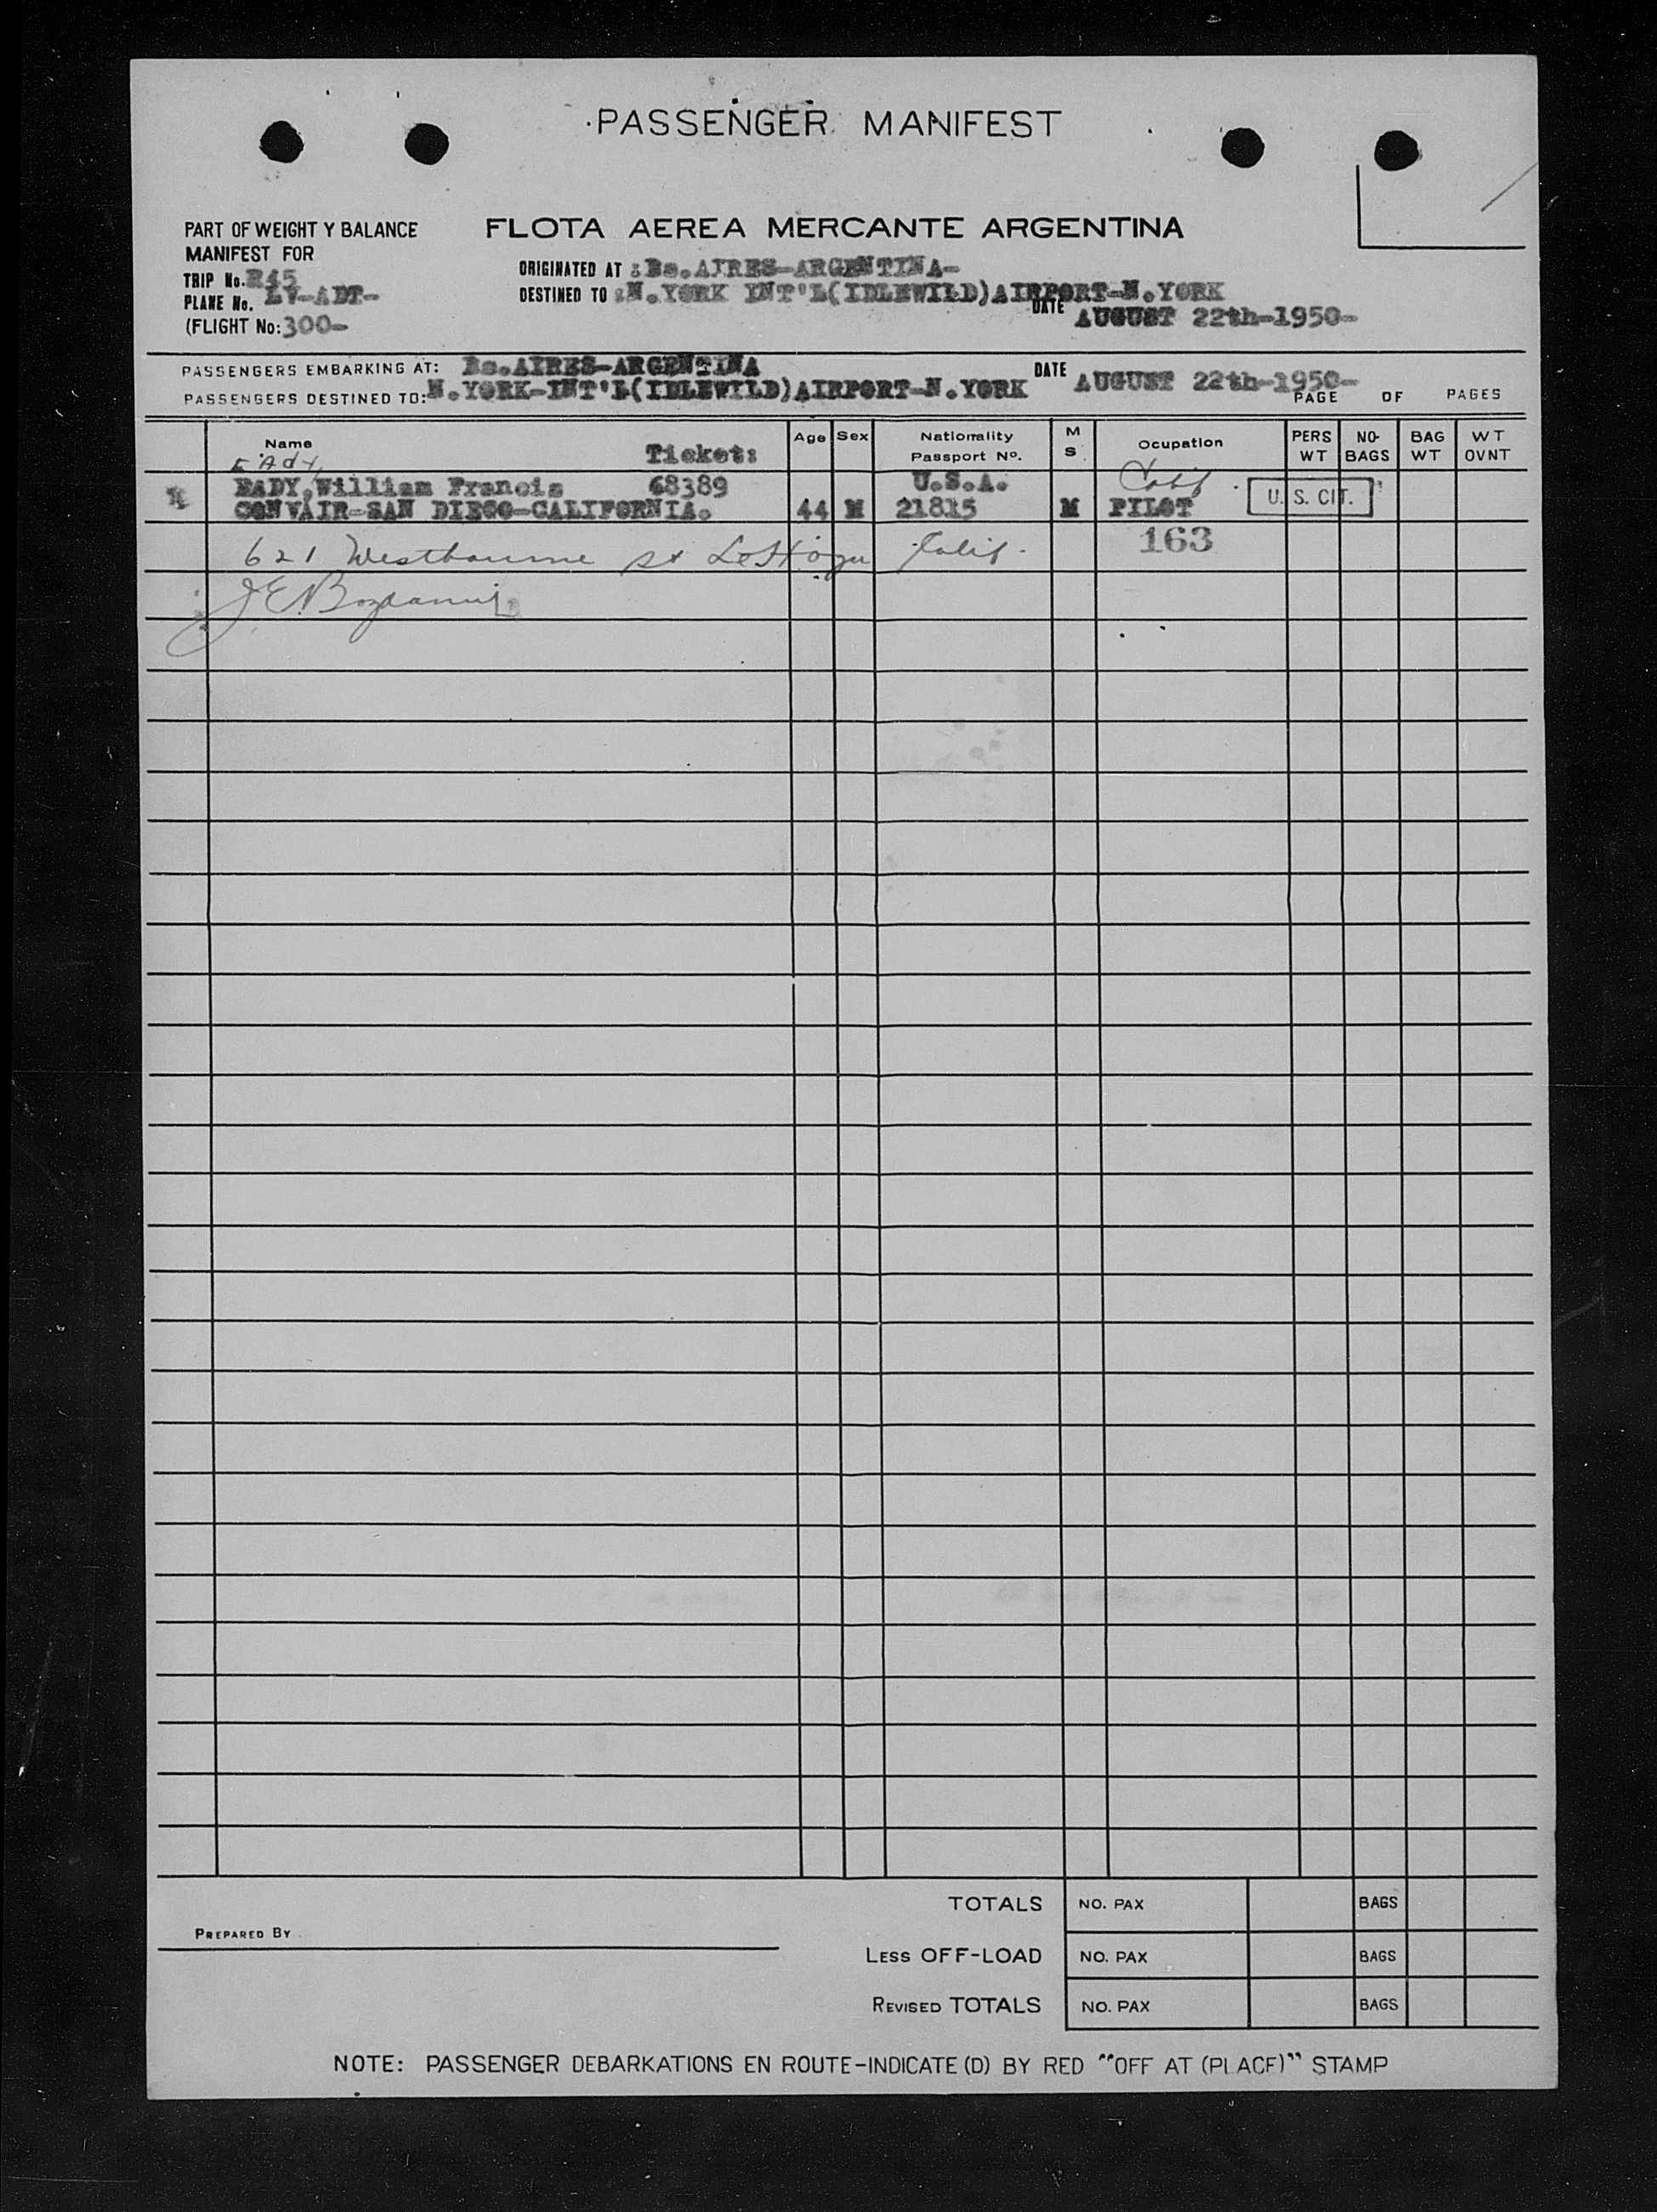 PASSENGER MANIFEST
PART OF WEIGHT Y BALANCE
MANIFEST FOR
FLOTA AEREA MERCANTE ARGENTINA
TRIP No. R45
ORIGINATED AT :Bs.AIRES-ARGENTINA-
PLANE No. LV-ADT-
DESTINED TO :N.YORK INT'L(IDLEWILD)AIRPORT-N.YORK
(FLIGHT No: 300-
DATE AUGUST 22th-1950-
PASSENGERS EMBARKING AT: Bs.AIRES-ARGENTINA
DATE AUGUST 22th-1950-
PASSENGERS DESTINED TO: N.YORK-INT'L(IDLEWILD)AIRPORT-N.YORK
PAGE OF PAGES
Name Tickets Age Sex Nationality Passport Nº. M S. Ocupation PERS WT NO- BAGS BAG WT WT OVNT
EAdy
EADY,William Francis 68389 U.S.A. Calif.
CONVAIR-SAN DIEGO-CALIFORNIA. 44 M 21815 M PILOT U. S. CIT.
621 Westbourne st Calif. 163
TOTALS NO. PAX BAGS
PREPARED BY
LESS OFF-LOAD NO. PAX BAGS
REVISED TOTALS NO. PAX BAGS
NOTE: PASSENGER DEBARKATIONS EN ROUTE-INDICATE (D) BY RED "OFF AT (PLACE)" STAMP